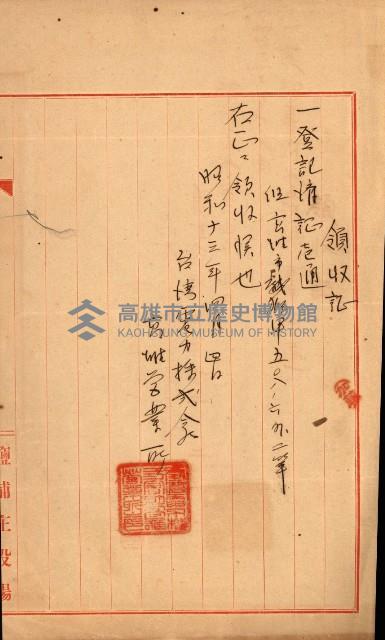 領收証
一登記濟証壱通
但高雄市戲獅甲五〇八ノ六外二筆
右正ニ領收候也
昭和十三年四月四日
台湾電力株式会
高雄営業所
鹽埔庄役場
高雄市立歷史博物館
KAOHSIUNG MUSEUM OF HISTORY